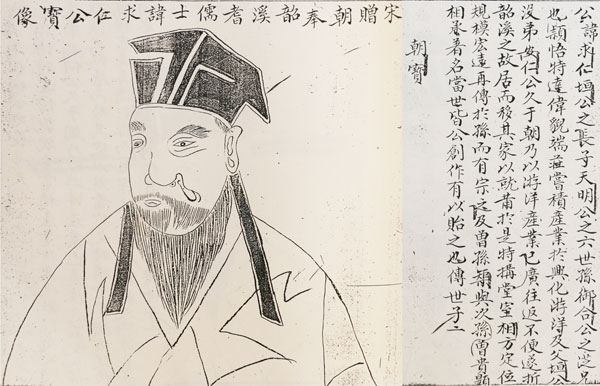 宋贈朝奉韶溪耆儒士諱求仁公寶像
公諱求仁垣公之長子天明公之六世孫御合公之從兄
也穎悟特達偉貌端莊嘗積產業於興化游洋及父垣公
沒弟安仁公久于朝乃以游洋產業已廣往返不便遂折
韶溪之故居而移其家以就莆於是特搆堂室相方定位
規模宏遠再傳於孫而有宗之及曾孫穎與次孫曾貴
相承著名當世皆公創作有以貽之也傳世子二
朝寶